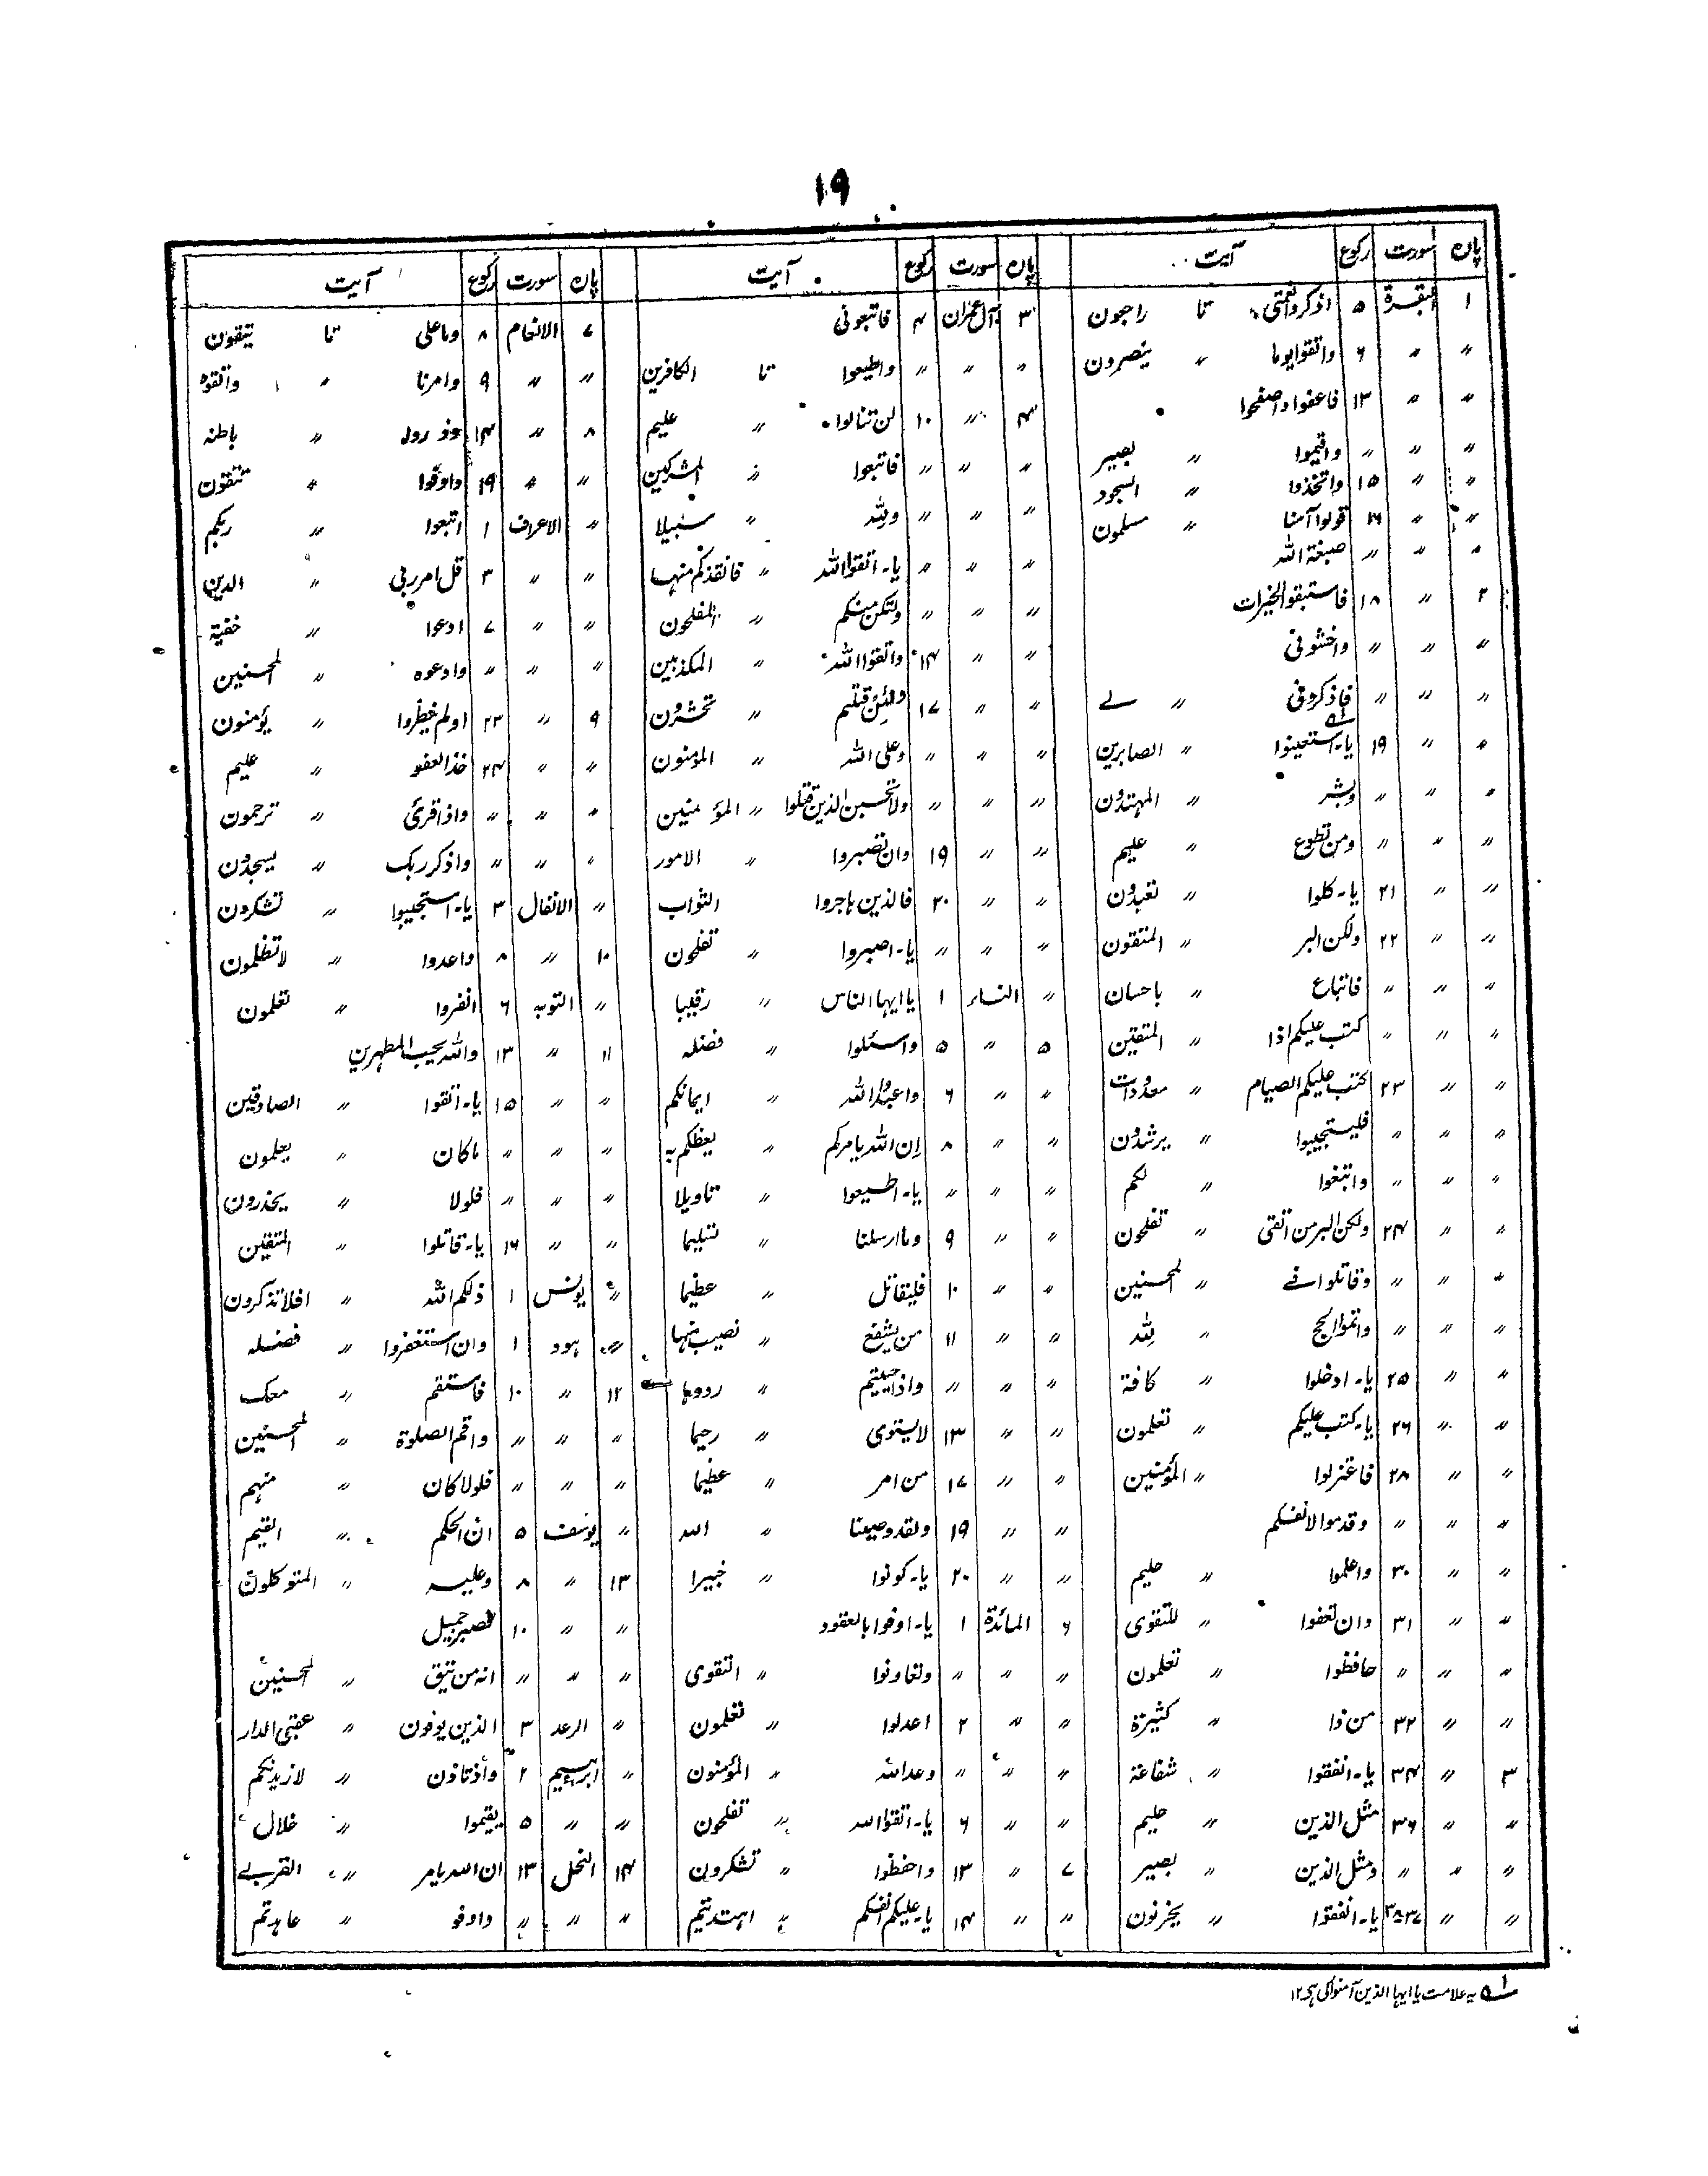 ۱۹
پارہ سورت رکوع آیت
۱ البقرة ۵ اذکروا نعمتی تا راجون
〃 〃 ۶ واتقوا یوما 〃 ینصرون
〃 〃 ۱۳ فاعفوا واصفحوا
〃 〃 〃 واقیموا 〃 بصیر
〃 〃 ۱۵ واتخذوا 〃 السجود
〃 〃 ۱۶ قولوا آمنا 〃 مسلمون
〃 〃 〃 صبغة الله
۲ 〃 ۱۸ فاستبقوا الخیرات
〃 〃 〃 واخشونی
〃 〃 〃 فاذکرونی 〃 لے
〃 〃 ۱۹ یا۔استعینوا 〃 الصابرین
〃 〃 〃 وبشر 〃 المہتدون
〃 〃 〃 ومن تطوع 〃 علیم
〃 〃 ۲۱ یا۔کلوا 〃 تعبدون
〃 〃 ۲۲ ولکن البر 〃 المتقون
〃 〃 〃 فاتباع 〃 باحسان
〃 〃 〃 کتب علیکم اذا 〃 المتقین
〃 〃 ۲۳ کتب علیکم الصیام 〃 معدودات
〃 〃 〃 فلیستجیبوا 〃 یرشدون
〃 〃 〃 وابتغوا 〃 لکم
〃 〃 ۲۴ ولکن البر من اتقی 〃 تفلحون
〃 〃 〃 وقاتلوا فے 〃 المحسنین
〃 〃 〃 واتموا الحج 〃 للہ
〃 〃 ۲۵ یا۔ادخلوا 〃 کافة
〃 〃 ۲۶ یا۔کتب علیکم 〃 تعلمون
〃 〃 ۲۸ فاعتزلوا 〃 المؤمنین
〃 〃 〃 وقدموا لانفسکم
〃 〃 ۳۰ واعلموا 〃 حلیم
〃 〃 ۳۱ وان تعفوا 〃 للتقوی
〃 〃 〃 حافظوا 〃 تعلمون
〃 〃 ۳۲ من ذا 〃 کثیرة
۳ 〃 ۳۴ یا۔انفقوا 〃 شفاعة
〃 〃 ۳۶ مثل الذین 〃 حلیم
〃 〃 〃 ومثل الذین 〃 بصیر
〃 〃 ۳۷۔۳۸ یا۔انفقوا 〃 یحزنون
پارہ سورت رکوع آیت
۳ آل عمران ۴ فاتبعونی
〃 〃 〃 واطیعوا تا الکافرین
۴ 〃 ۱۰ لن تنالوا 〃 علیم
〃 〃 〃 فاتبعوا 〃 المشرکین
〃 〃 〃 وللہ 〃 سبیلا
〃 〃 〃 یا۔اتقوا الله 〃 فانقذکم منہا
〃 〃 〃 ولتکن منکم 〃 المفلحون
〃 〃 ۱۴ واتقوا الله 〃 المکذبین
〃 〃 ۱۷ ولئن قتلتم 〃 تحشرون
〃 〃 〃 وعلی الله 〃 المؤمنون
〃 〃 〃 ولا تحسبن الذین قتلوا 〃 المؤمنین
〃 〃 ۱۹ وان تصبروا 〃 الامور
〃 〃 ۲۰ فالذین ہاجروا الثواب
〃 〃 〃 یا۔اصبروا 〃 تفلحون
〃 النساء ۱ یا ایہا الناس 〃 رقیبا
۵ 〃 ۵ واسئلوا 〃 فضلہ
〃 〃 ۶ واعبدوا الله 〃 ایمانکم
〃 〃 ۸ ان الله یامرکم 〃 یعظکم بہ
〃 〃 〃 یا۔اطیعوا 〃 تاویلا
〃 〃 ۹ وما ارسلنا 〃 تسلیما
〃 〃 ۱۰ فلیقاتل 〃 عظیما
〃 〃 ۱۱ من یشفع 〃 نصیب منہا
〃 〃 〃 واذا حییتم 〃 ردوہا
〃 〃 ۱۳ لا یستوی 〃 رحیما
〃 〃 ۱۷ من امر 〃 عظیما
〃 〃 ۱۹ ولقد وصینا 〃 الله
〃 〃 ۲۰ یا۔کونوا 〃 خبیرا
۶ المائدة ۱ یا۔اوفوا بالعقود
〃 〃 〃 وتعاونوا 〃 التقوی
〃 〃 ۲ اعدلوا 〃 تعلمون
〃 〃 〃 وعد الله 〃 المؤمنون
〃 〃 ۶ یا۔اتقوا الله 〃 تفلحون
۷ 〃 ۱۳ واحفظوا 〃 تشکرون
〃 〃 ۱۴ یا۔علیکم انفسکم 〃 اہتدیتم
پارہ سورت رکوع آیت
۷ الانعام ۸ وما علی تا یتقون
〃 〃 ۹ وامرنا 〃 واتقوہ
۸ 〃 ۱۴ وذروا 〃 باطنہ
〃 〃 ۱۹ واوفوا 〃 تتقون
〃 الاعراف ۱ اتبعوا 〃 ربکم
〃 〃 ۳ قل امر ربی 〃 الدین
〃 〃 ۷ ادعوا 〃 خفیة
〃 〃 〃 وادعوہ 〃 المحسنین
۹ 〃 ۲۳ اولم ینظروا 〃 یؤمنون
〃 〃 ۲۴ خذ العفو 〃 علیم
〃 〃 〃 واذا قرئ 〃 ترحمون
〃 〃 〃 واذکر ربک 〃 یسجدون
〃 الانفال ۳ یا۔استجیبوا 〃 تشکرون
۱۰ 〃 ۸ واعدوا 〃 لا تظلمون
〃 التوبہ ۶ انفروا 〃 تعلمون
۱۱ 〃 ۱۳ والله یحب المطہرین
〃 〃 ۱۵ یا۔اتقوا 〃 الصادقین
〃 〃 〃 ماکان 〃 یعلمون
〃 〃 〃 فلولا 〃 یحذرون
〃 〃 ۱۶ یا۔قاتلوا 〃 المتقین
〃 یونس ۱ ذلکم الله 〃 افلا تذکرون
〃 ہود ۱ وان استغفروا 〃 فضلہ
۱۲ 〃 ۱۰ فاستقم 〃 معک
〃 〃 〃 واقم الصلوة 〃 المحسنین
〃 〃 〃 فلولا کان 〃 منہم
〃 یوسف ۵ ان الحکم 〃 القیم
۱۳ 〃 ۸ وعلیہ 〃 المتوکلون
〃 〃 ۱۰ فصبر جمیل
〃 〃 〃 انہ من یتق 〃 المحسنین
〃 الرعد ۳ الذین یوفون 〃 عقبی الدار
〃 ابرہیم ۲ واذ تاذن 〃 لازیدنکم
〃 〃 ۵ یقیموا 〃 خلال
۱۴ النحل ۱۳ ان الله یامر 〃 القربے
〃 〃 〃 واوفو 〃 عاہدتم
۱ یہ علامت یا ایہا الذین آمنوا کی ہے ۱۲